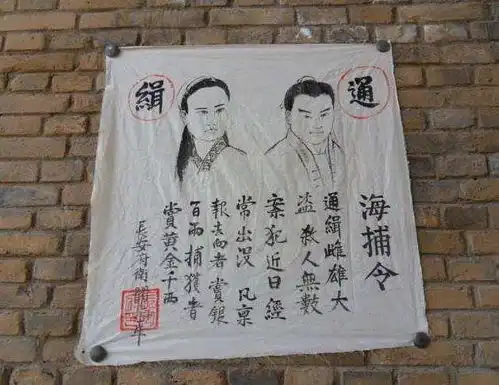 通緝
海捕令
通緝雌雄大
盜 殺人無數
案犯近日經
常出沒 凡稟
報去向者 賞銀
百两 捕獲者
賞黃金千两
長安府衙 年